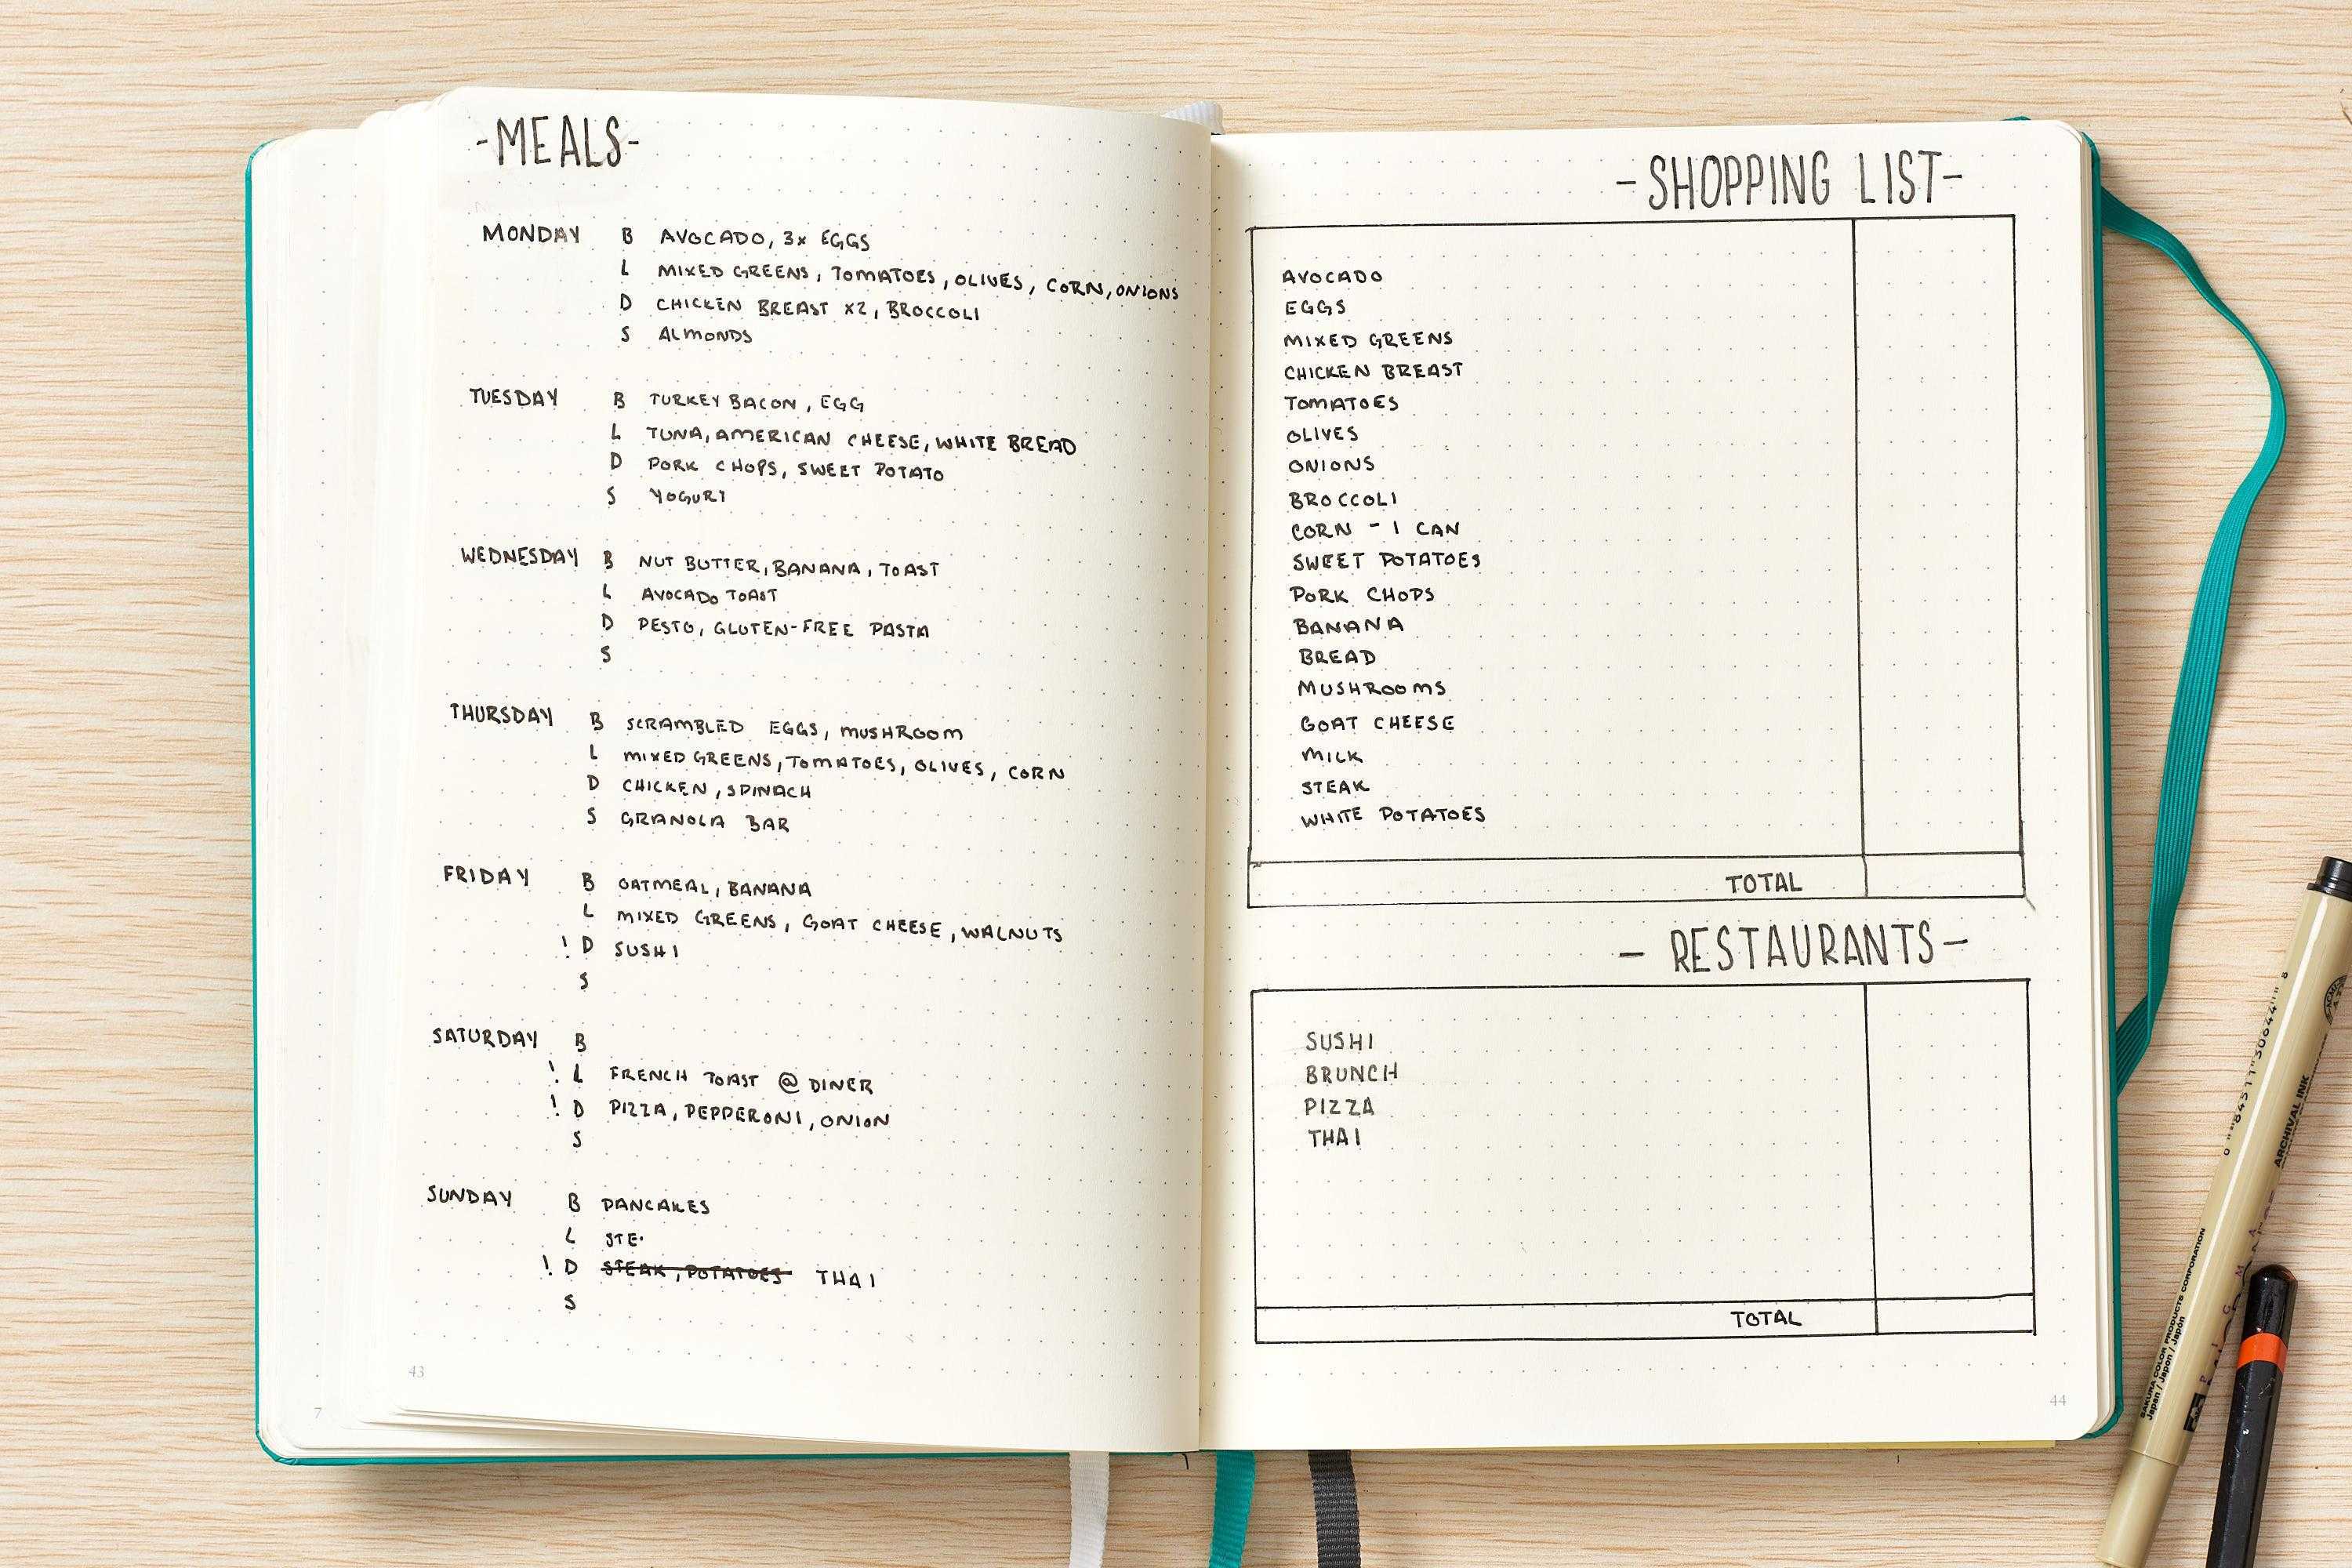 -MEALS-
MONDAY B AVOCADO, 3x EGGS
L MIXED GREENS, TOMATOES, OLIVES, CORN, ONIONS
D CHICKEN BREAST x2, BROCCOLI
S ALMONDS
TUESDAY B TURKEY BACON, EGG
L TUNA, AMERICAN CHEESE, WHITE BREAD
D PORK CHOPS, SWEET POTATO
S YOGURT
WEDNESDAY B NUT BUTTER, BANANA, TOAST
L AVOCADO TOAST
D PESTO, GLUTEN-FREE PASTA
S
THURSDAY B SCRAMBLED EGGS, MUSHROOM
L MIXED GREENS, TOMATOES, OLIVES, CORN
D CHICKEN, SPINACH
S GRANOLA BAR
FRIDAY B OATMEAL, BANANA
L MIXED GREENS, GOAT CHEESE, WALNUTS
! D SUSHI
S
SATURDAY B
! L FRENCH TOAST @ DINER
! D PIZZA, PEPPERONI, ONION
S
SUNDAY B PANCAKES
L STE
! D STEAK, POTATOES THAI
S
43
7
-SHOPPING LIST-
AVOCADO
EGGS
MIXED GREENS
CHICKEN BREAST
TOMATOES
OLIVES
ONIONS
BROCCOLI
CORN - 1 CAN
SWEET POTATOES
PORK CHOPS
BANANA
BREAD
MUSHROOMS
GOAT CHEESE
MILK
STEAK
WHITE POTATOES
TOTAL
- RESTAURANTS-
SUSHI
BRUNCH
PIZZA
THAI
TOTAL
44
ARCHIVAL INK
SAKURA COLOR PRODUCTS CORPORATION
Japan / Japon / Japón